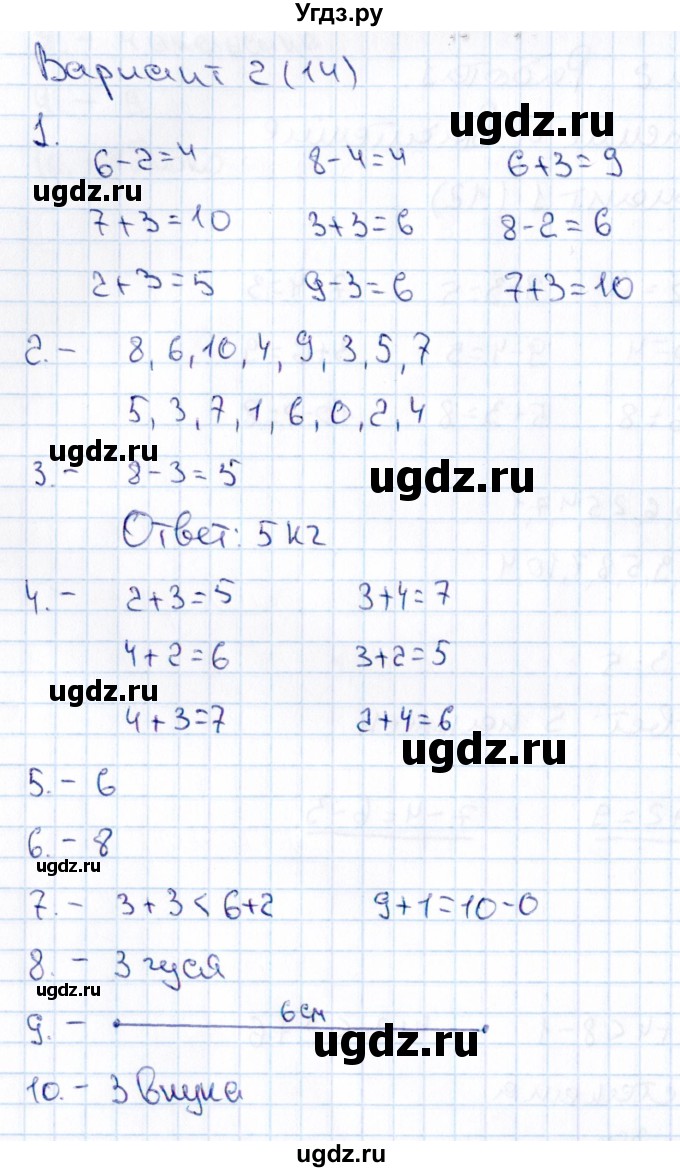 Угдз.ру
Вариант 2 (14)
ugdz.ru
1.
6-2=4 8-4=4 6+3=9
ugdz.ru
7+3=10 3+3=6 8-2=6
2+3=5 9-3=6 7+3=10
2.- 8, 6, 10, 4, 9, 3, 5, 7
ugdz.ru
5, 3, 7, 1, 6, 0, 2, 4
ugdz.ru
3.- 8-3=5
ugdz.ru
Ответ: 5 кг
4.- 2+3=5 3+4=7
4+2=6 3+2=5
ugdz.ru
4+3=7 2+4=6
ugdz.ru
5.- 6
6.- 8
ugdz.ru
7.- 3+3<6+2 9+1=10-0
8.- 3 гуся
ugdz.ru
9.- 6 см
ugdz.ru
10.- 3 внука
ugdz.ru
ugdz.ru